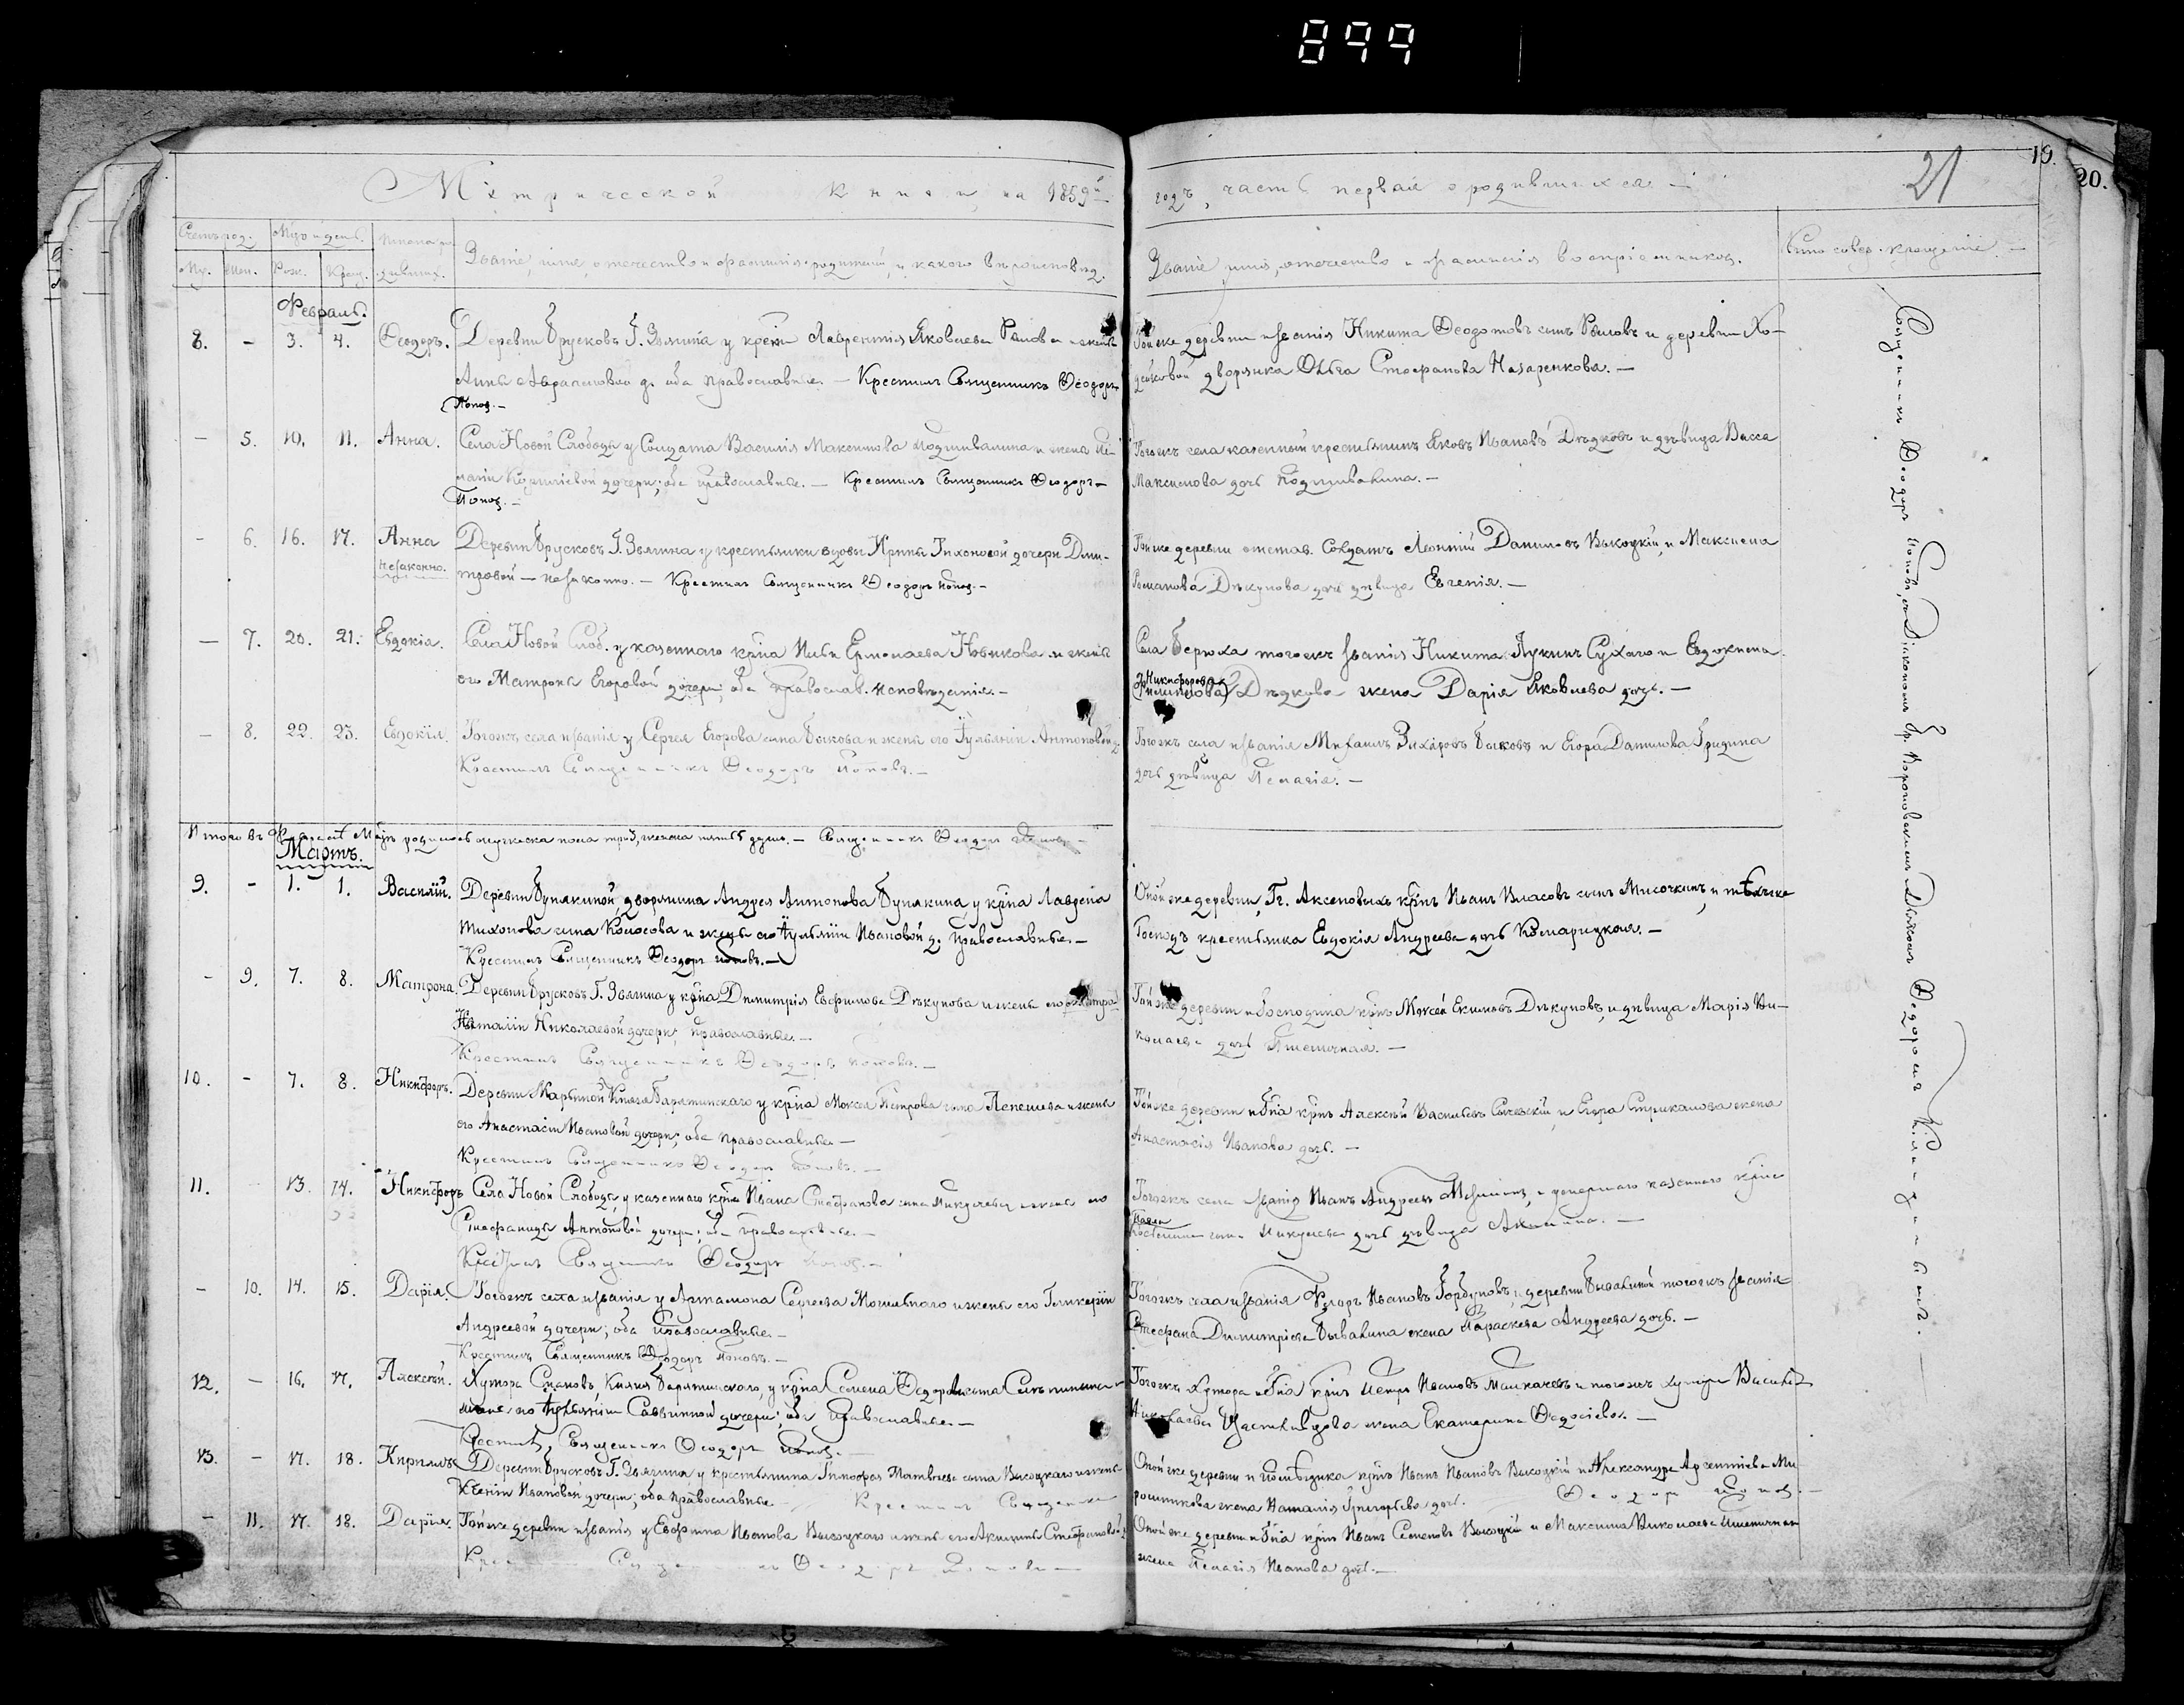 899
21
19.
20.
Метрической книги, на 1859й
годъ, часть первая о родившихся. —
Счетъ род.
Мцъ и день.
Имена ро-
дившихся.
Му.
Жен.
Рож.
Крещ.
Званіе, имя, отечество и фамилія родителей, и какого вѣроисповѣд.
Званіе, имя, отечество и фамилія воспріемниковъ.
Кто совер. крещеніе. —
Февраль.
8. - 3. 4. Ѳеодоръ. Деревни Брусковъ Г. Звягина у крѣна Лаврентія Яковлева и жены
Анны Авраамовой д. оба православные. — Крестилъ Священникъ Ѳеодоръ
Попов. —
Той же деревни и званія Никита Ѳеодотовъ сынъ и деревни Хо-
дворянка Ольга Стефанова Назаренкова. —
- 5. 10. 11. Анна. Села Новой Слободы у Солдата Василія Максимова и жены Пе-
лагіи дочери; оба православные. — Крестилъ Священникъ Ѳеодоръ
Попов. —
Тогожъ села казенный крестьянинъ Яковъ Ивановъ Дѣдковъ и дѣвица Васса
Максимова дочь Подшивалина. —
- 6. 16. 17. Анна
незаконно.
Деревни Брусковъ Г. Звягина у крестьянки вдовы Ирины Тихоновой дочери Дми-
тровой — незаконно. — Крестилъ Священникъ Ѳеодоръ Попов. —
Той же деревни отстав. Солдатъ Леонтій Даниловъ Высоцкій, и Максима
Романова Дѣкунова дочь дѣвица Евгенія. —
— 7. 20. 21. Евдокія. Села Новой Слоб. у казеннаго крѣна Ильи Ермолаева Новикова и жены
его Матроны Егоровой дочери; оба православ. исповѣданія. —
Села Берюха тогожъ званія Никита Лукинъ Сухаго и Евдокима
Никифорова
Дѣдкова жена Дарія Яковлева дочь. —
— 8. 22. 23. Евдокія. Тогожъ села и званія у Сергея Егорова сына Быкова и жены его Іульяніи Антоновой д.
Крестилъ Священникъ Ѳеодоръ Поповъ. —
Тогожъ села и званія Михаилъ Захаровъ Быковъ и Егора Данилова Гридина
дочь дѣвица Пелагія. —
Итого въ Февралѣ Мцѣ родилось мужеска пола три, женска пять душъ. — Священникъ Ѳеодоръ Поповъ —
Мартъ.
9. - 1. 1. Василій. Деревни Бунякиной, дворянина Андрея Антонова Бунякина, у крѣна Лаврентія
Тихонова сына Колосова и жены его Іульяніи Ивановой д. православные. —
Крестилъ Священникъ Ѳеодоръ Поповъ. —
Оной же деревни, Гг. Аксеновыхъ крѣнъ Иванъ Власовъ сынъ Мисочкинъ, и тѣхъже
Господъ крестьянка Евдокія Андреева дочь Комарицкая. —
- 9. 7. 8. Матрона. Деревни Брусковъ Г. Звягина у крѣна Димитрія Евфимова Дѣкунова и жены его
Наталіи Николаевой дочери; православные. —
Крестилъ Священникъ Ѳеодоръ Поповъ. —
Той же деревни и Господина крѣнъ Моисей Екимовъ Дѣкуновъ, и дѣвица Марія Ни-
колаева дочь Пшеничная. —
10. - 7. 8. Никифоръ. Деревни Марьиной Князя Барятинскаго у крѣна Моисея Петрова сына Лепешева и жены
его Анастасіи Ивановой дочери; оба православные. —
Крестилъ Священникъ Ѳеодоръ Поповъ. —
Той же деревни и Гна крѣнъ Алексѣй Васильевъ Сычевскій, и Егора Стрикалова жена
Анастасія Иванова дочь. —
11. 13. 14. Никифоръ Села Новой Слободы у казеннаго крѣна Ивана Стефанова сына Микулаева и жены его
Стефаниды Антоновой дочери; оба православные. —
Крестилъ Священникъ Ѳеодоръ Попов. —
Тогожъ села и званія Иванъ Андреевъ и умершаго казеннаго крѣна
Павла
сына Микулаева дочь дѣвица Акилина. —
— 10. 14. 15. Дарія. Тогожъ села и званія у Артамона Сергеева Могильнаго и жены его Гликеріи
Андреевой дочери; оба православные. —
Крестилъ Священникъ Ѳеодоръ Поповъ. —
Тогожъ села и званія Ѳедоръ Ивановъ Горбуновъ, и деревни Бывалиной тогожъ званія
Стефана Димитріева Бывалина жена Параскева Андреева дочь. —
12. — 16. 17. Алексѣй. Хутора Князя Барятинскаго, у крѣна Семена Ѳедорова сына
жены его Іульяніи Саввичной дочери; оба православные. —
Крестилъ, Священникъ Ѳеодоръ Попов. —
Тогожъ Хутора и Гна крѣнъ Петръ Ивановъ и тогожъ хутора Василія
Николаева жена Екатерина Ѳедосіева. —
13. — 17. 18. Кириллъ. Деревни Брусковъ Г. Звягина у крестьянина Тимофея Матвѣева сына Высоцкаго и жены
Ксеніи Ивановой дочери; оба православные — Крестилъ Священникъ
Оной же деревни и Помѣщика крѣнъ Иванъ Ивановъ Высоцкій и Александра Арсентіева Ми-
рошникова жена Наталія Григорьева дочь. Ѳеодоръ Поповъ. —
- 11. 17. 18. Дарія. Той же деревни и званія у Евфима Иванова Высоцкаго и жены его Акилины Стефановой д.
Крестилъ Священникъ Ѳеодоръ Поповъ —
Оной же деревни и Гна крѣнъ Иванъ Семеновъ Высоцкій и Максима Николаева Пшеничнаго
жена Пелагія Иванова дочь. —
Священникъ Ѳеодоръ Поповъ, съ Діакономъ Гр. Дьячкомъ Ѳедоромъ